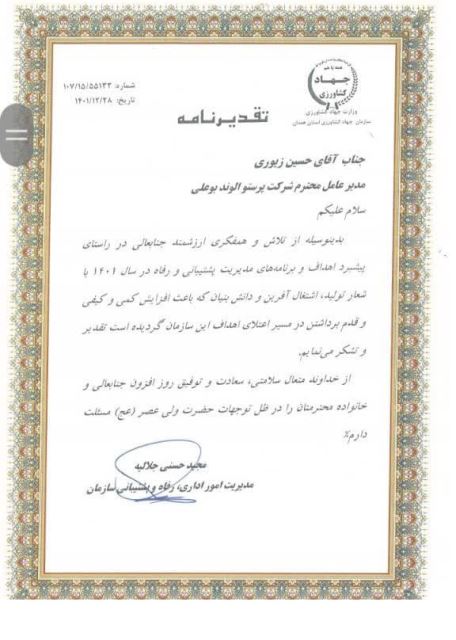 همه با هم
جهاد
کشاورزی
وزارت جهاد کشاورزی
سازمان جهاد کشاورزی استان همدان
شماره: ۱۰۷/۱۵/۵۵۱۳۳
تاریخ: ۱۴۰۱/۱۲/۲۸
تقدیرنامه
جناب آقای حسین زیوری
مدیر عامل محترم شرکت پرستو الوند بوعلی
سلام علیکم
بدینوسیله از تلاش و همفکری ارزشمند جنابعالی در راستای
پیشبرد اهداف و برنامه‌های مدیریت پشتیبانی و رفاه در سال ۱۴۰۱ با
شعار تولید، اشتغال آفرین و دانش بنیان که باعث افزایش کمی و کیفی
و قدم برداشتن در مسیر اعتلای اهداف این سازمان گردیده است تقدیر
و تشکر می‌نمایم.
از خداوند متعال سلامتی، سعادت و توفیق روز افزون جنابعالی و
خانواده محترمتان را در ظل توجهات حضرت ولی عصر (عج) مسئلت
دارم٪
مجید حسنی جلالیه
مدیریت امور اداری، رفاه و پشتیبانی سازمان